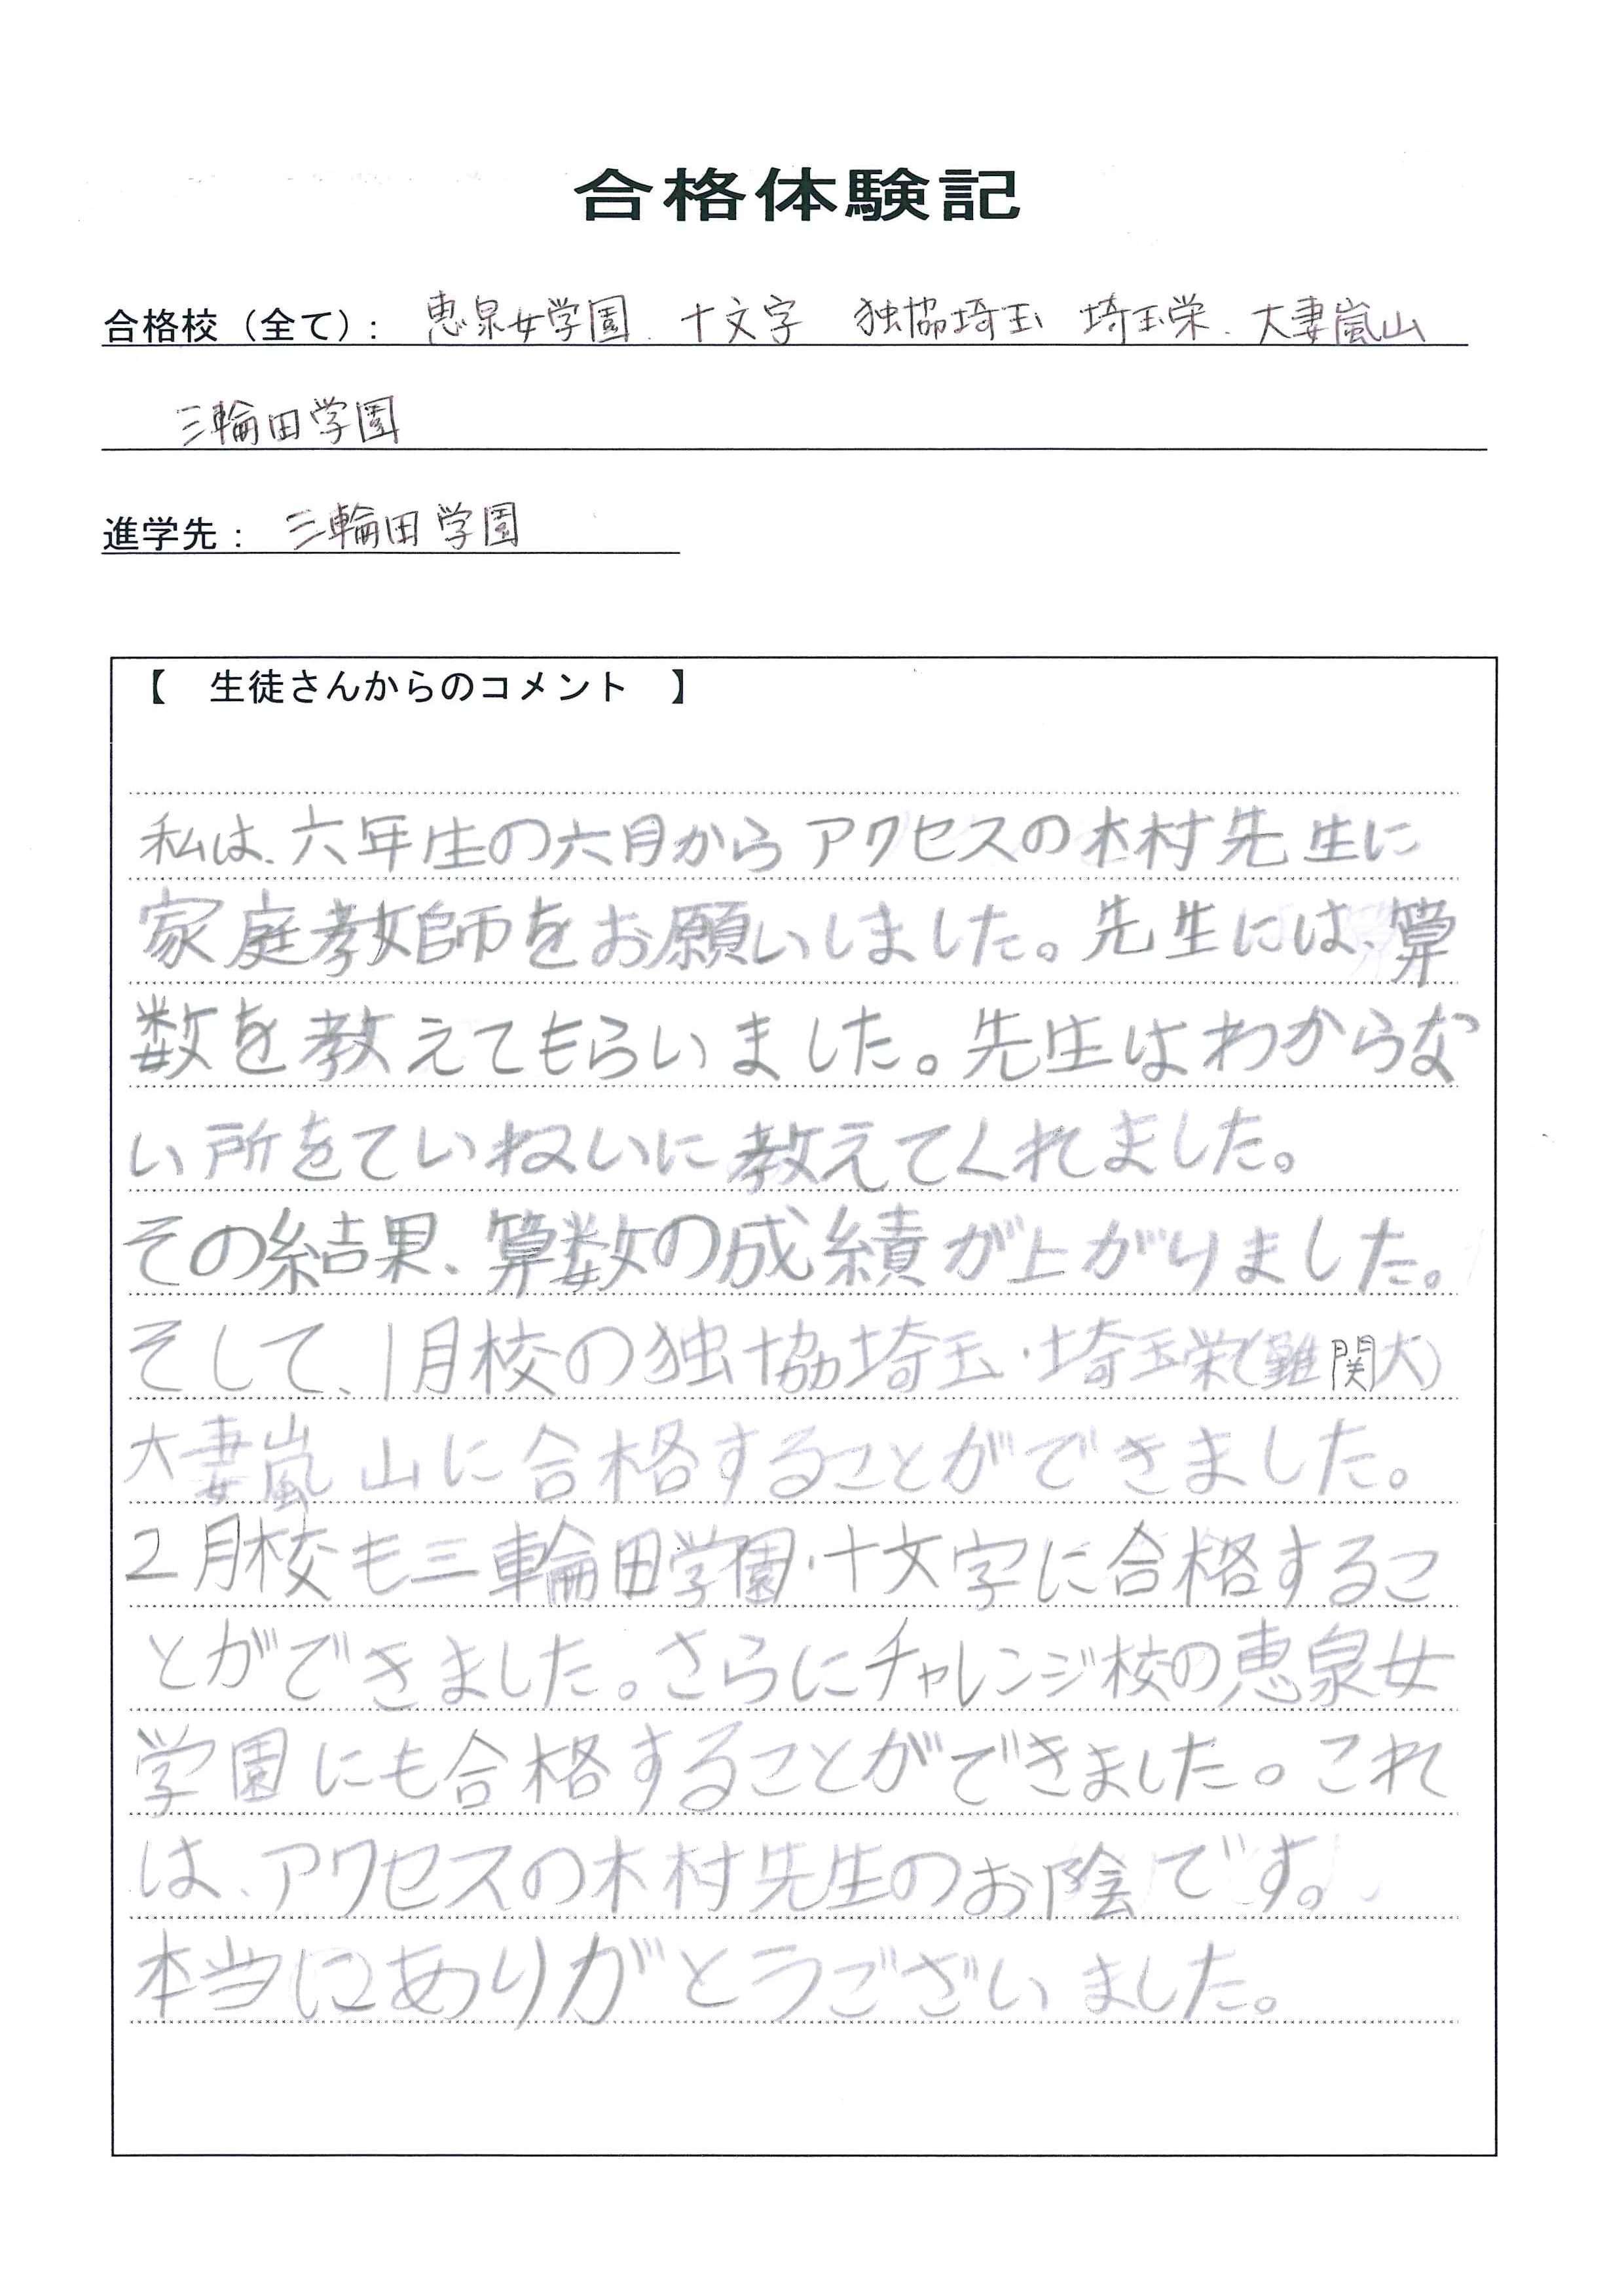 合格体験記
合格校（全て）: 恵泉女学園. 十文字 独協埼玉 埼玉栄. 大妻嵐山
三輪田学園
進学先: 三輪田学園
【 生徒さんからのコメント 】
私は、六年生の六月からアクセスの木村先生に
家庭教師をお願いしました。先生には、算
数を教えてもらいました。先生はわからな
い所をていねいに教えてくれました。
その結果、算数の成績が上がりました。
そして、1月校の独協埼玉・埼玉栄(難関大)
大妻嵐山に合格することができました。
2月校も三輪田学園・十文字に合格するこ
とができました。さらにチャレンジ校の恵泉女
学園にも合格することができました。これ
は、アクセスの木村先生のお陰です。
本当にありがとうございました。